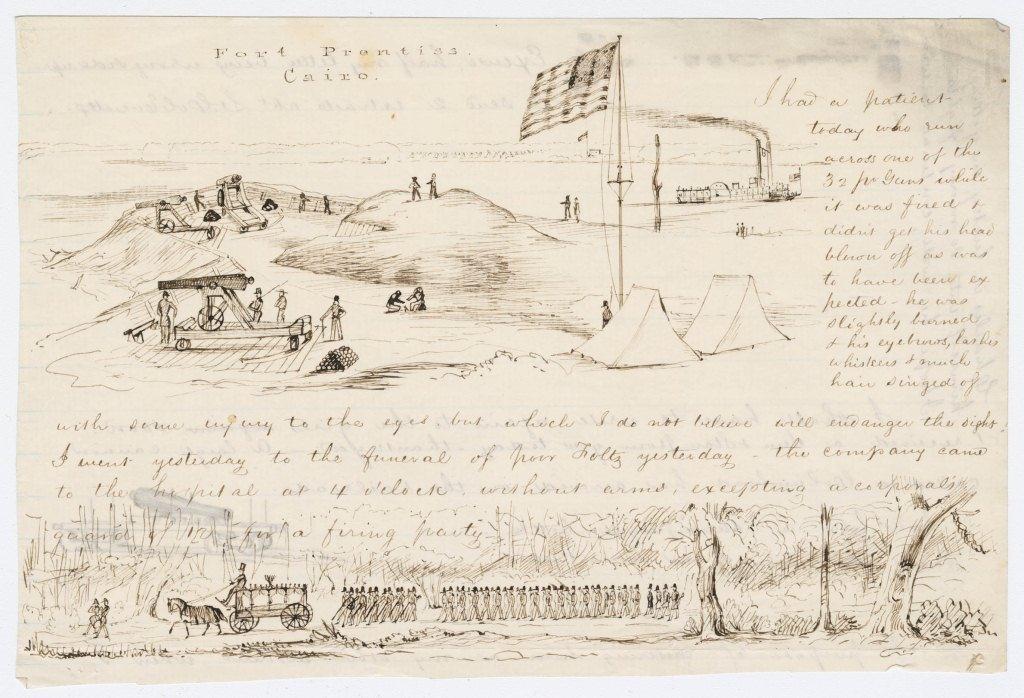 Fort Prentiss.
Cairo.
I had a patient
today who run
across one of the
32 pr Guns while
it was fired &
didnt get his head
blown off as was
to have been ex
pected - he was
slightly burned
& his eyebrows, lashes
whiskers & much
hair singed of
with some injury to the eyes but which I do not believe will endanger the sight
I went yesterday to the funeral of poor Foltz yesterday - the company came
to the hospital at 4 o'clock, without arms, excepting a corporals
guard of 12 for a firing party